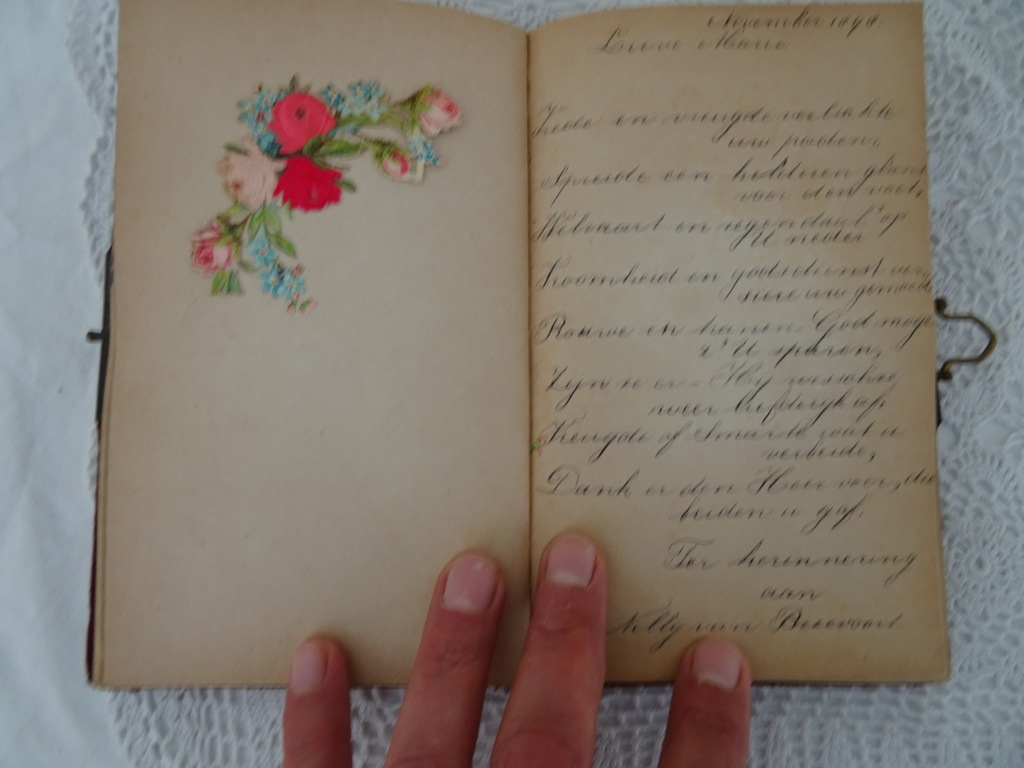 November 1898
Lieve Marie
Vrede en vreugde
uw paden,
Spreide een helderen glans
voor den voet,
Welvaart en zegen daal' op
U neder
Vroomheid en godsdienst ver,
siere uw gemoed
Rouwe en tranen - God moge
z' U sparen,
Zijn ze er - Hij wissche ze
weer liefderijk af,
Vreugde of Smarte wat u
verbeide,
Dank er den Heer voor, die
beiden u gaf.
Ter herinnering
aan
Nelly van